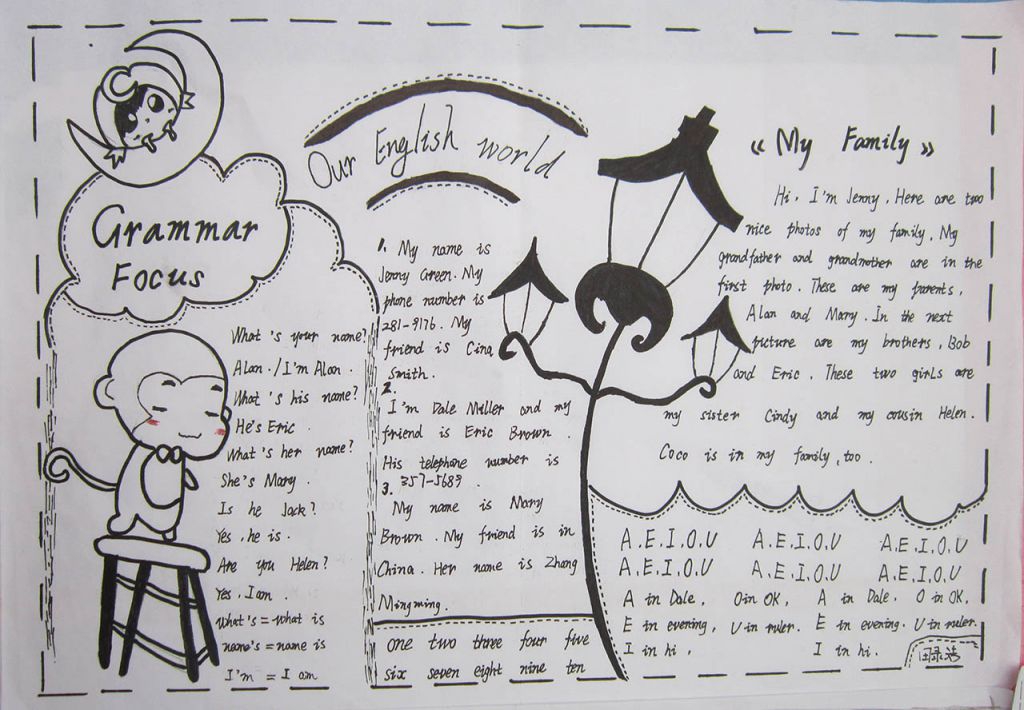 Our English world
Grammar
Focus
What's your name?
Alan./I'm Alan.
What's his name?
He's Eric.
What's her name?
She's Mary.
Is he Jack?
Yes, he is.
Are you Helen?
Yes, I am.
what's = what is
name's = name is
I'm = I am
1. My name is
Jenny Green. My
phone number is
281-9176. My
friend is Gina
Smith.
2.
I'm Dale Miller and my
friend is Eric Brown.
His telephone number is
357-5689.
3.
My name is Mary
Brown. My friend is in
China. Her name is Zhang
Mingming.
one two three four five
six seven eight nine ten
《My Family》
Hi, I'm Jenny. Here are two
nice photos of my family. My
grandfather and grandmother are in the
first photo. These are my parents,
Alan and Mary. In the next
picture are my brothers, Bob
and Eric. These two girls are
my sister Cindy and my cousin Helen.
Coco is in my family, too.
A.E.I.O.U A.E.I.O.U A.E.I.O.U
A.E.I.O.U A.E.I.O.U A.E.I.O.U
A in Dale, O in OK, A in Dale. O in OK,
E in evening, U in ruler. E in evening. U in ruler.
I in hi, I in hi.